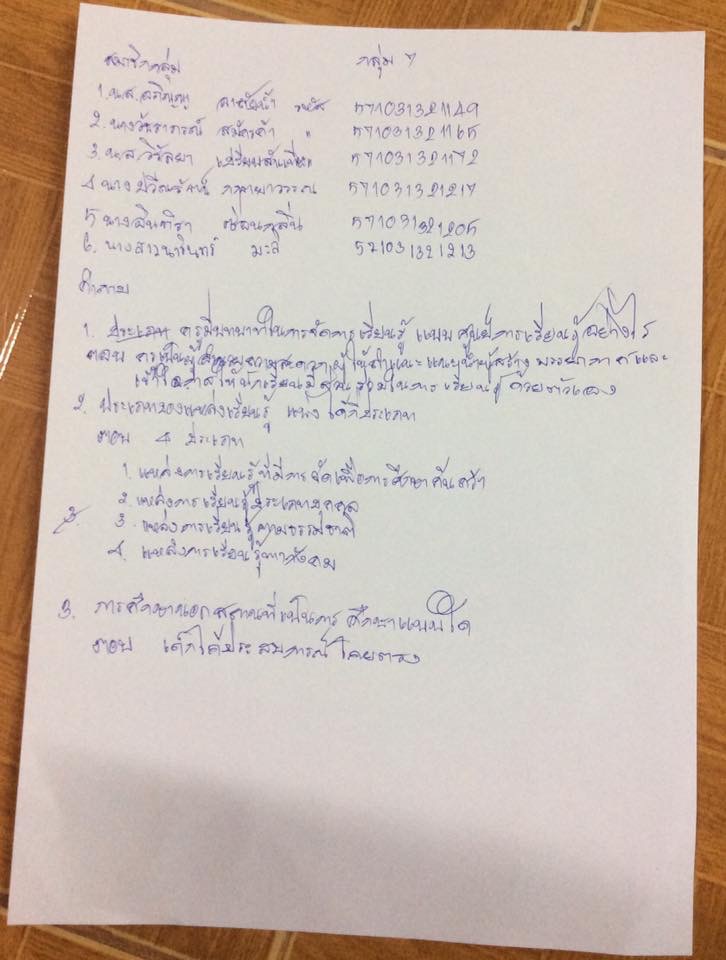 สมาชิกกลุ่ม กลุ่ม 7
1. น.ส. รหัส 571031321149
2. นาง " 571031321165
3. น.ส. วิชัลยา 571031321172
4. นาง 571031321217
5. นาง 571031321205
6. นางสาวนารินทร์ มะลิ 571031321213
คำถาม
1. ครูมีบทบาทในการจัดการเรียนรู้ แบบศูนย์การเรียนรู้อย่างไร
ตอบ ครูเป็นผู้อำนวยความสะดวก ผู้ให้คำแนะแนะนำผู้สร้าง บรรยกาศและ
เปิดโอกาสให้นักเรียนมีส่วนร่วมในการเรียนรู้ด้วยตัวเอง
2. ประเภทของแหล่งเรียนรู้ แบ่งได้กี่ประเภท
ตอบ 4 ประเภท
1. แหล่งการเรียนรู้ที่มีการจัดเพื่อการศึกษาค้นคว้า
2. แหล่งการเรียนรู้ประเภทบุคคล
3. แหล่งการเรียนรู้ตามธรรมชาติ
4. แหล่งการเรียนรู้ทางสังคม
3. การศึกษานอกสถานที่เป็นการศึกษาแบบใด
ตอบ เด็กได้ประสบการณ์โดยตรง